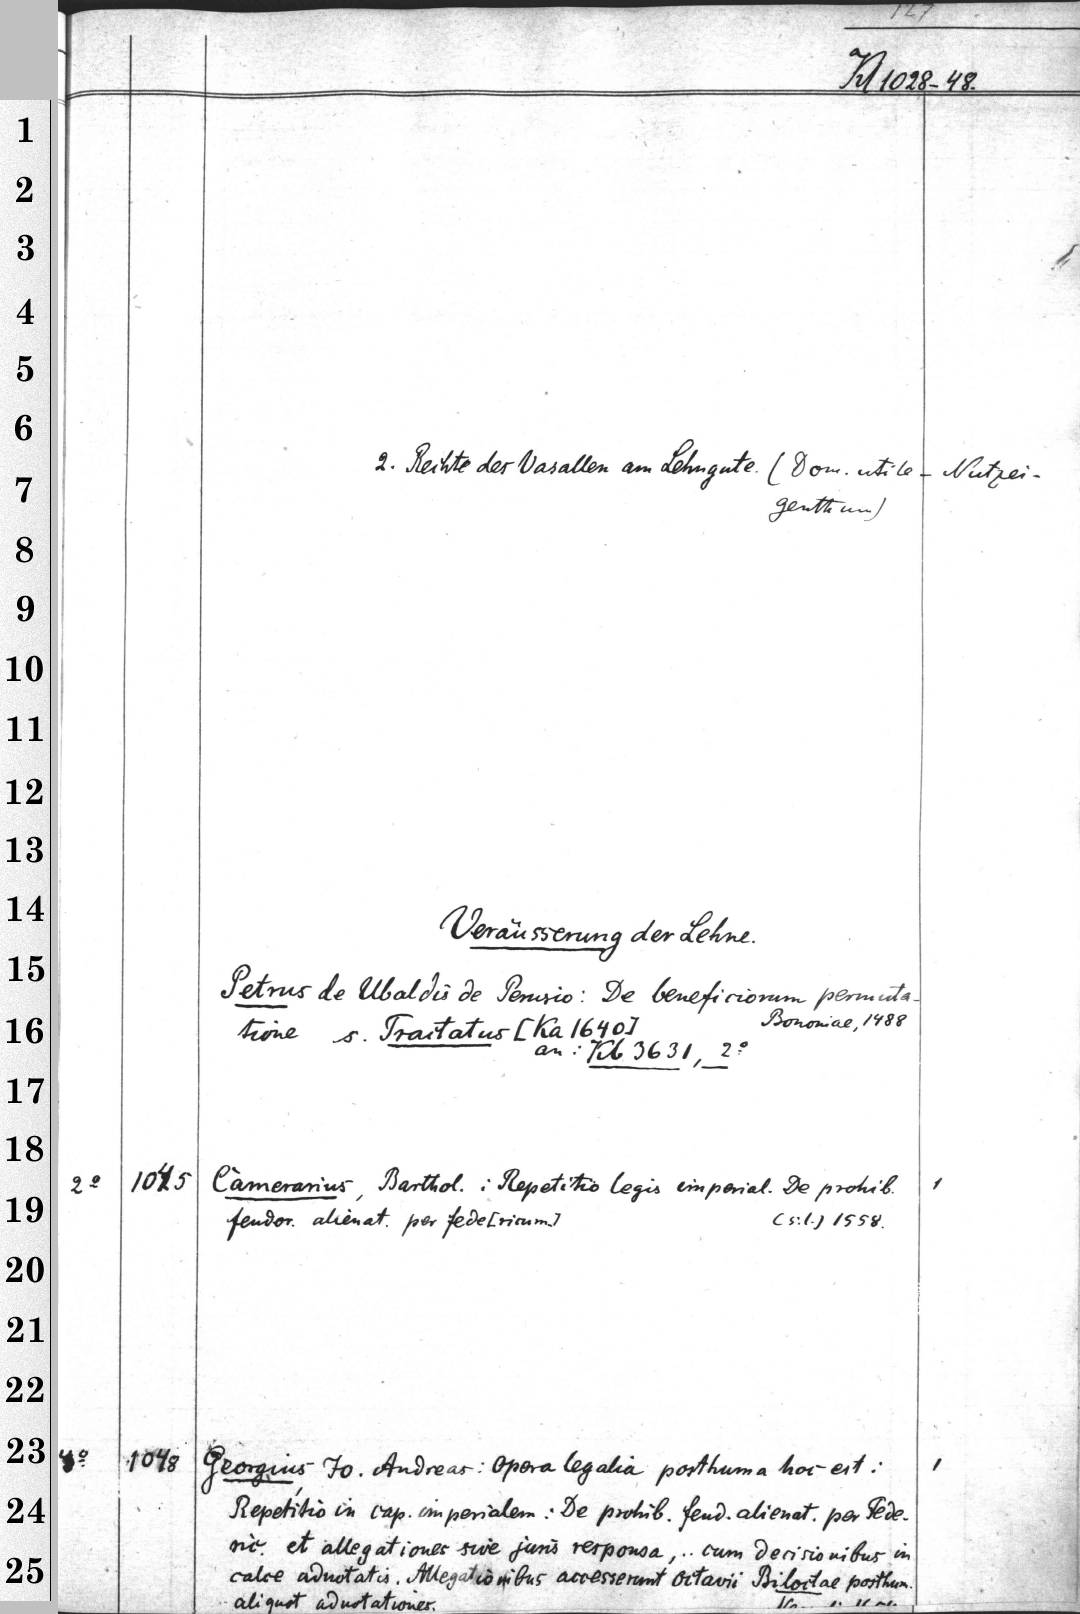 127
Kl 1028-48.
1
2
3
4
5
6
2. Rechte des Vasallen am Lehngute. (Dom. utile - Nutzei-
7
genthum)
8
9
10
11
12
13
14
Veräusserung der Lehne.
15
Petrus de Ubaldis de Perusio: De beneficiorum permuta-
16
tione s. Tractatus [Ka 1640] Bononiae, 1488
an: Kb 3631, 2º
17
18
2º 1045 Camerarius, Barthol.: Repetitio legis imperial. De prohib. 1
19
feudor. alienat. per fede[ricum] (s.l.) 1558.
20
21
22
23
4º 1048 Georgius, Jo. Andreas: Opera legalia posthuma hoc est: 1
24
Repetitio in cap. imperialem: De prohib. feud. alienat. per Fede-
ric. et allegationes sive juris responsa, .. cum decisionibus in
25
calce adnotatis. Allegationibus accesserunt Octavii Bilottae posthum.
aliquot adnotationes.